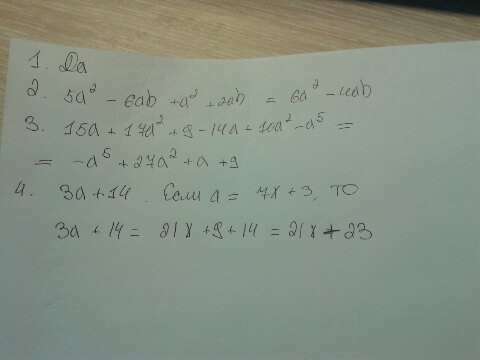 1. Да
2. 5a² - 6ab + a² + 2ab = 6a² - 4ab
3. 15a + 17a² + 9 - 14a + 10a² - a⁵ =
= -a⁵ + 27a² + a + 9
4. 3a + 14. Если a = 7x + 3, то
3a + 14 = 21x + 9 + 14 = 21x + 23